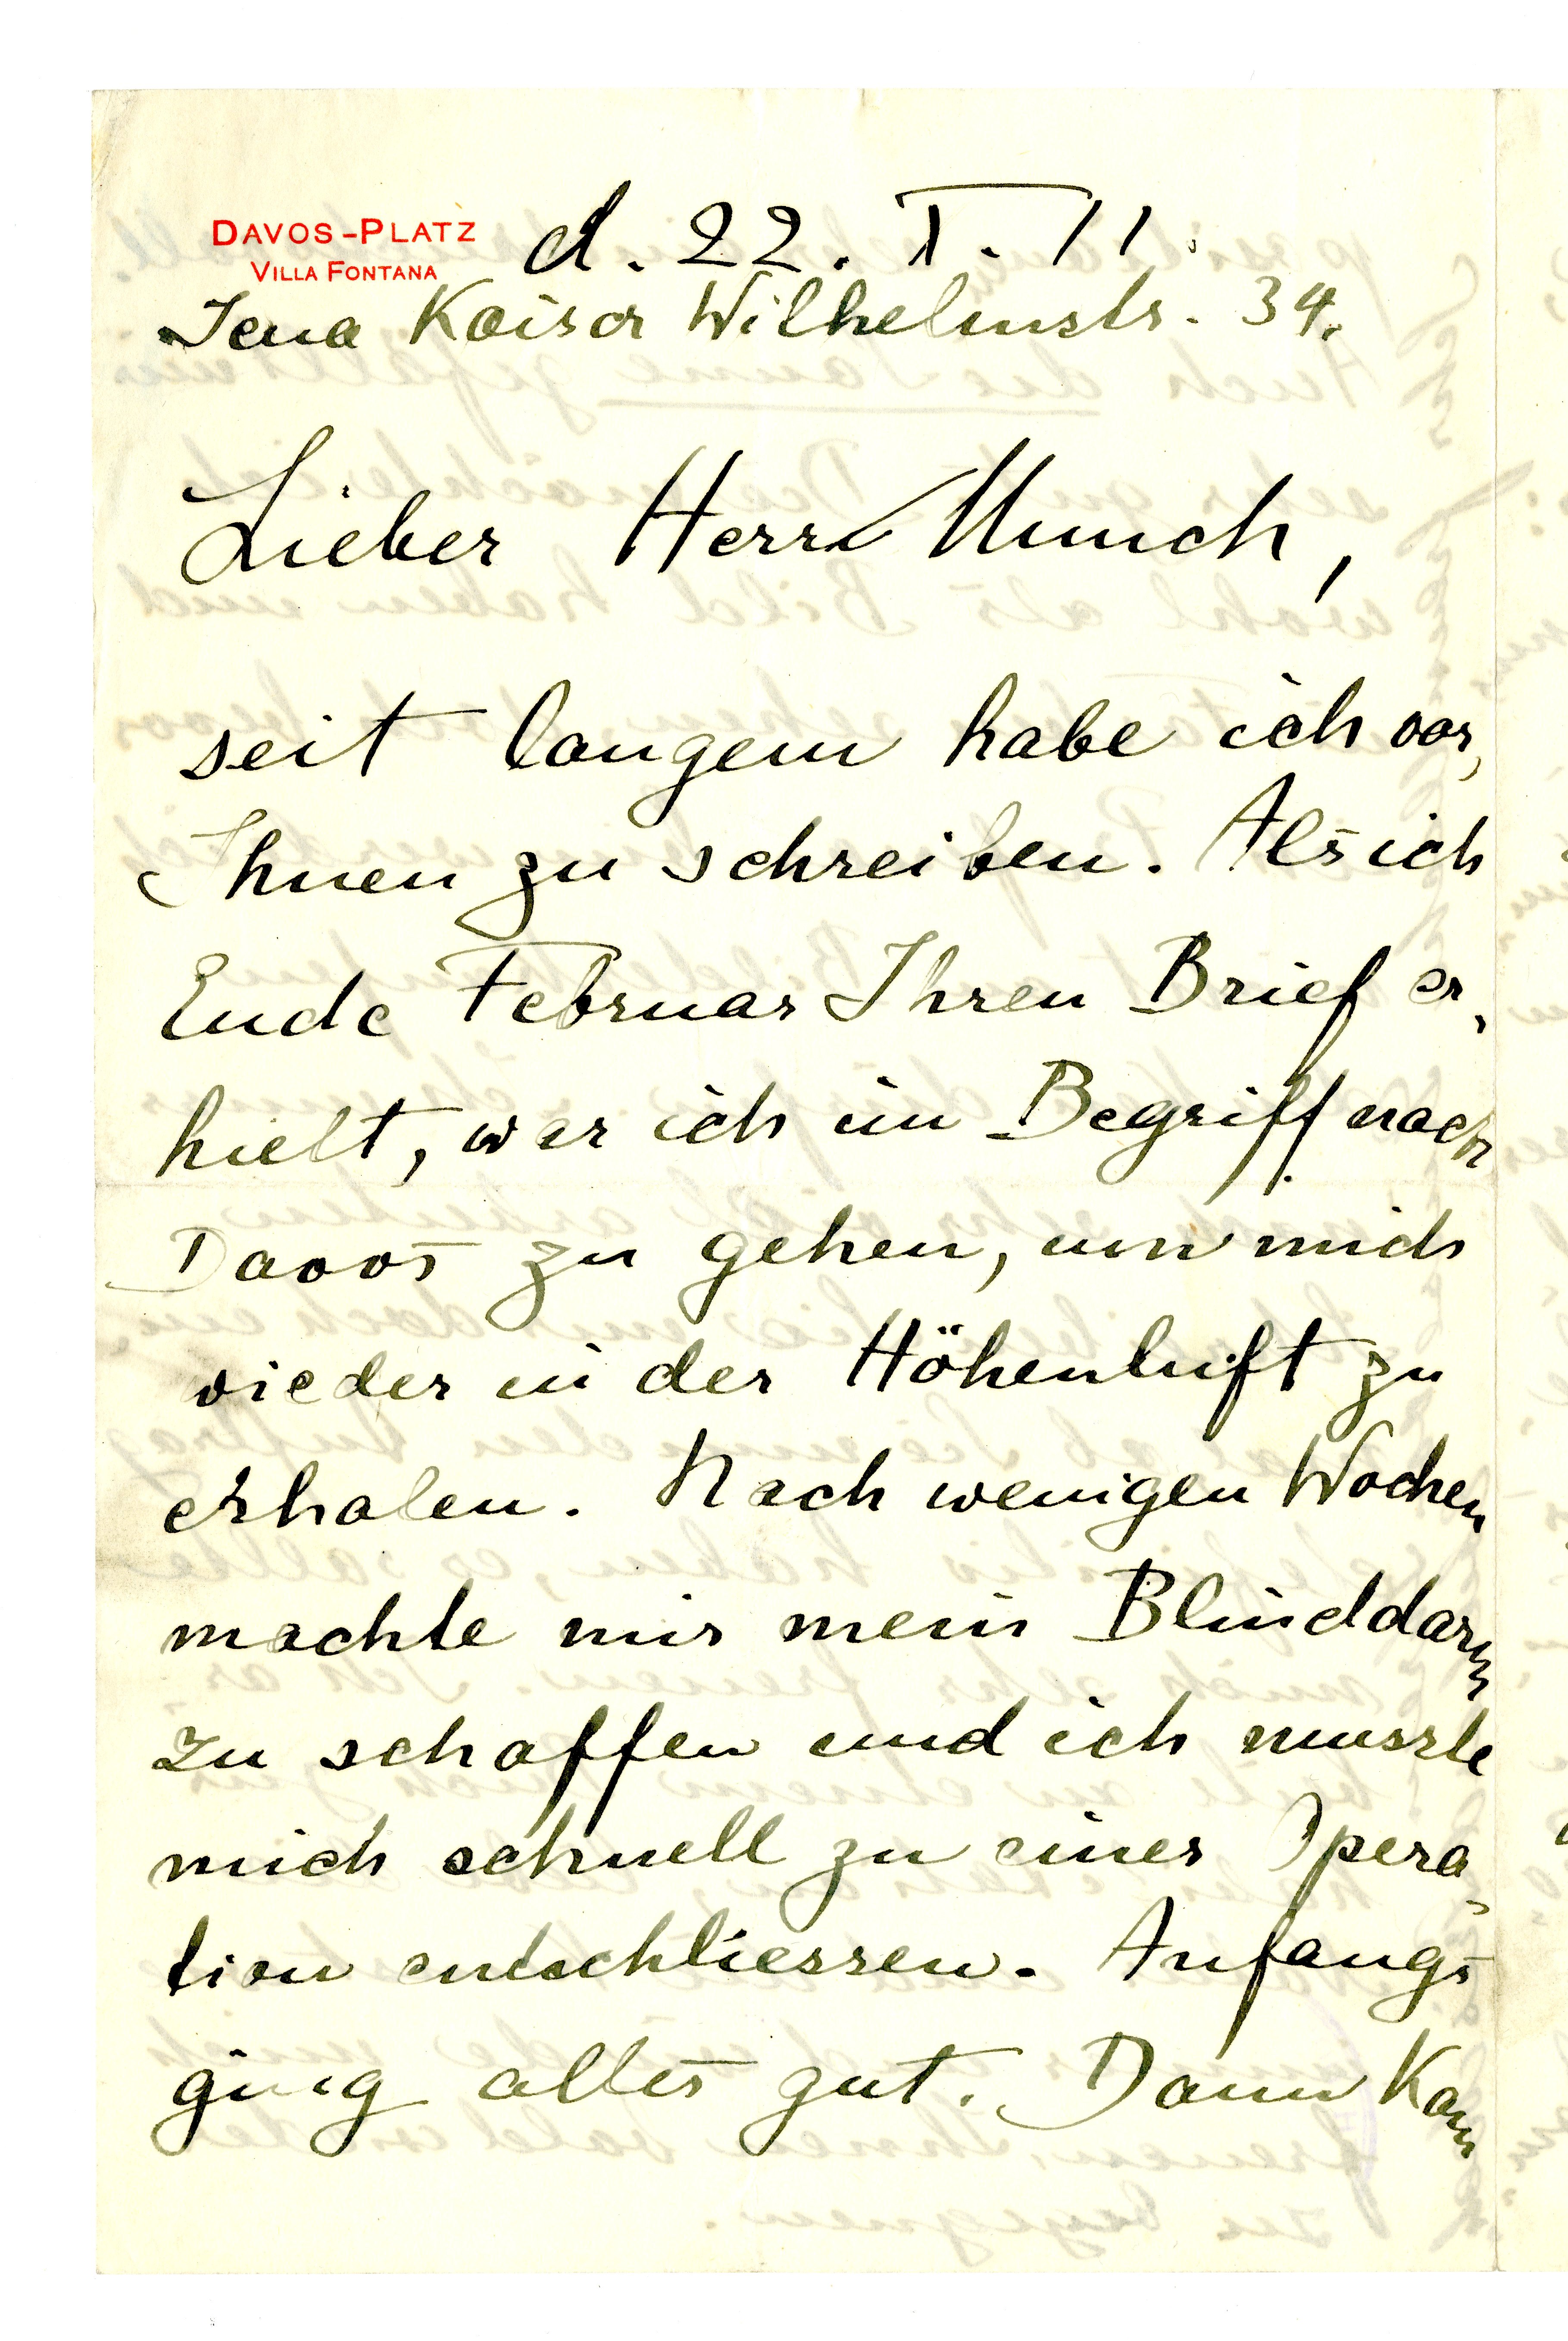 DAVOS-PLATZ
VILLA FONTANA
d. 22. I. 11.
Jena Kaiser Wilhelmstr. 34.
Lieber Herr Munch,
seit langem habe ich vor,
Ihnen zu schreiben. Als ich
Ende Februar Ihren Brief er-
hielt, war ich im Begriff nach
Davos zu gehen, um mich
wieder in der Höhenluft zu
erholen. Nach wenigen Wochen
machte mir mein Blinddarm
zu schaffen und ich musste
mich schnell zu einer Opera-
tion entschliessen. Anfangs
ging alles gut. Dann kam